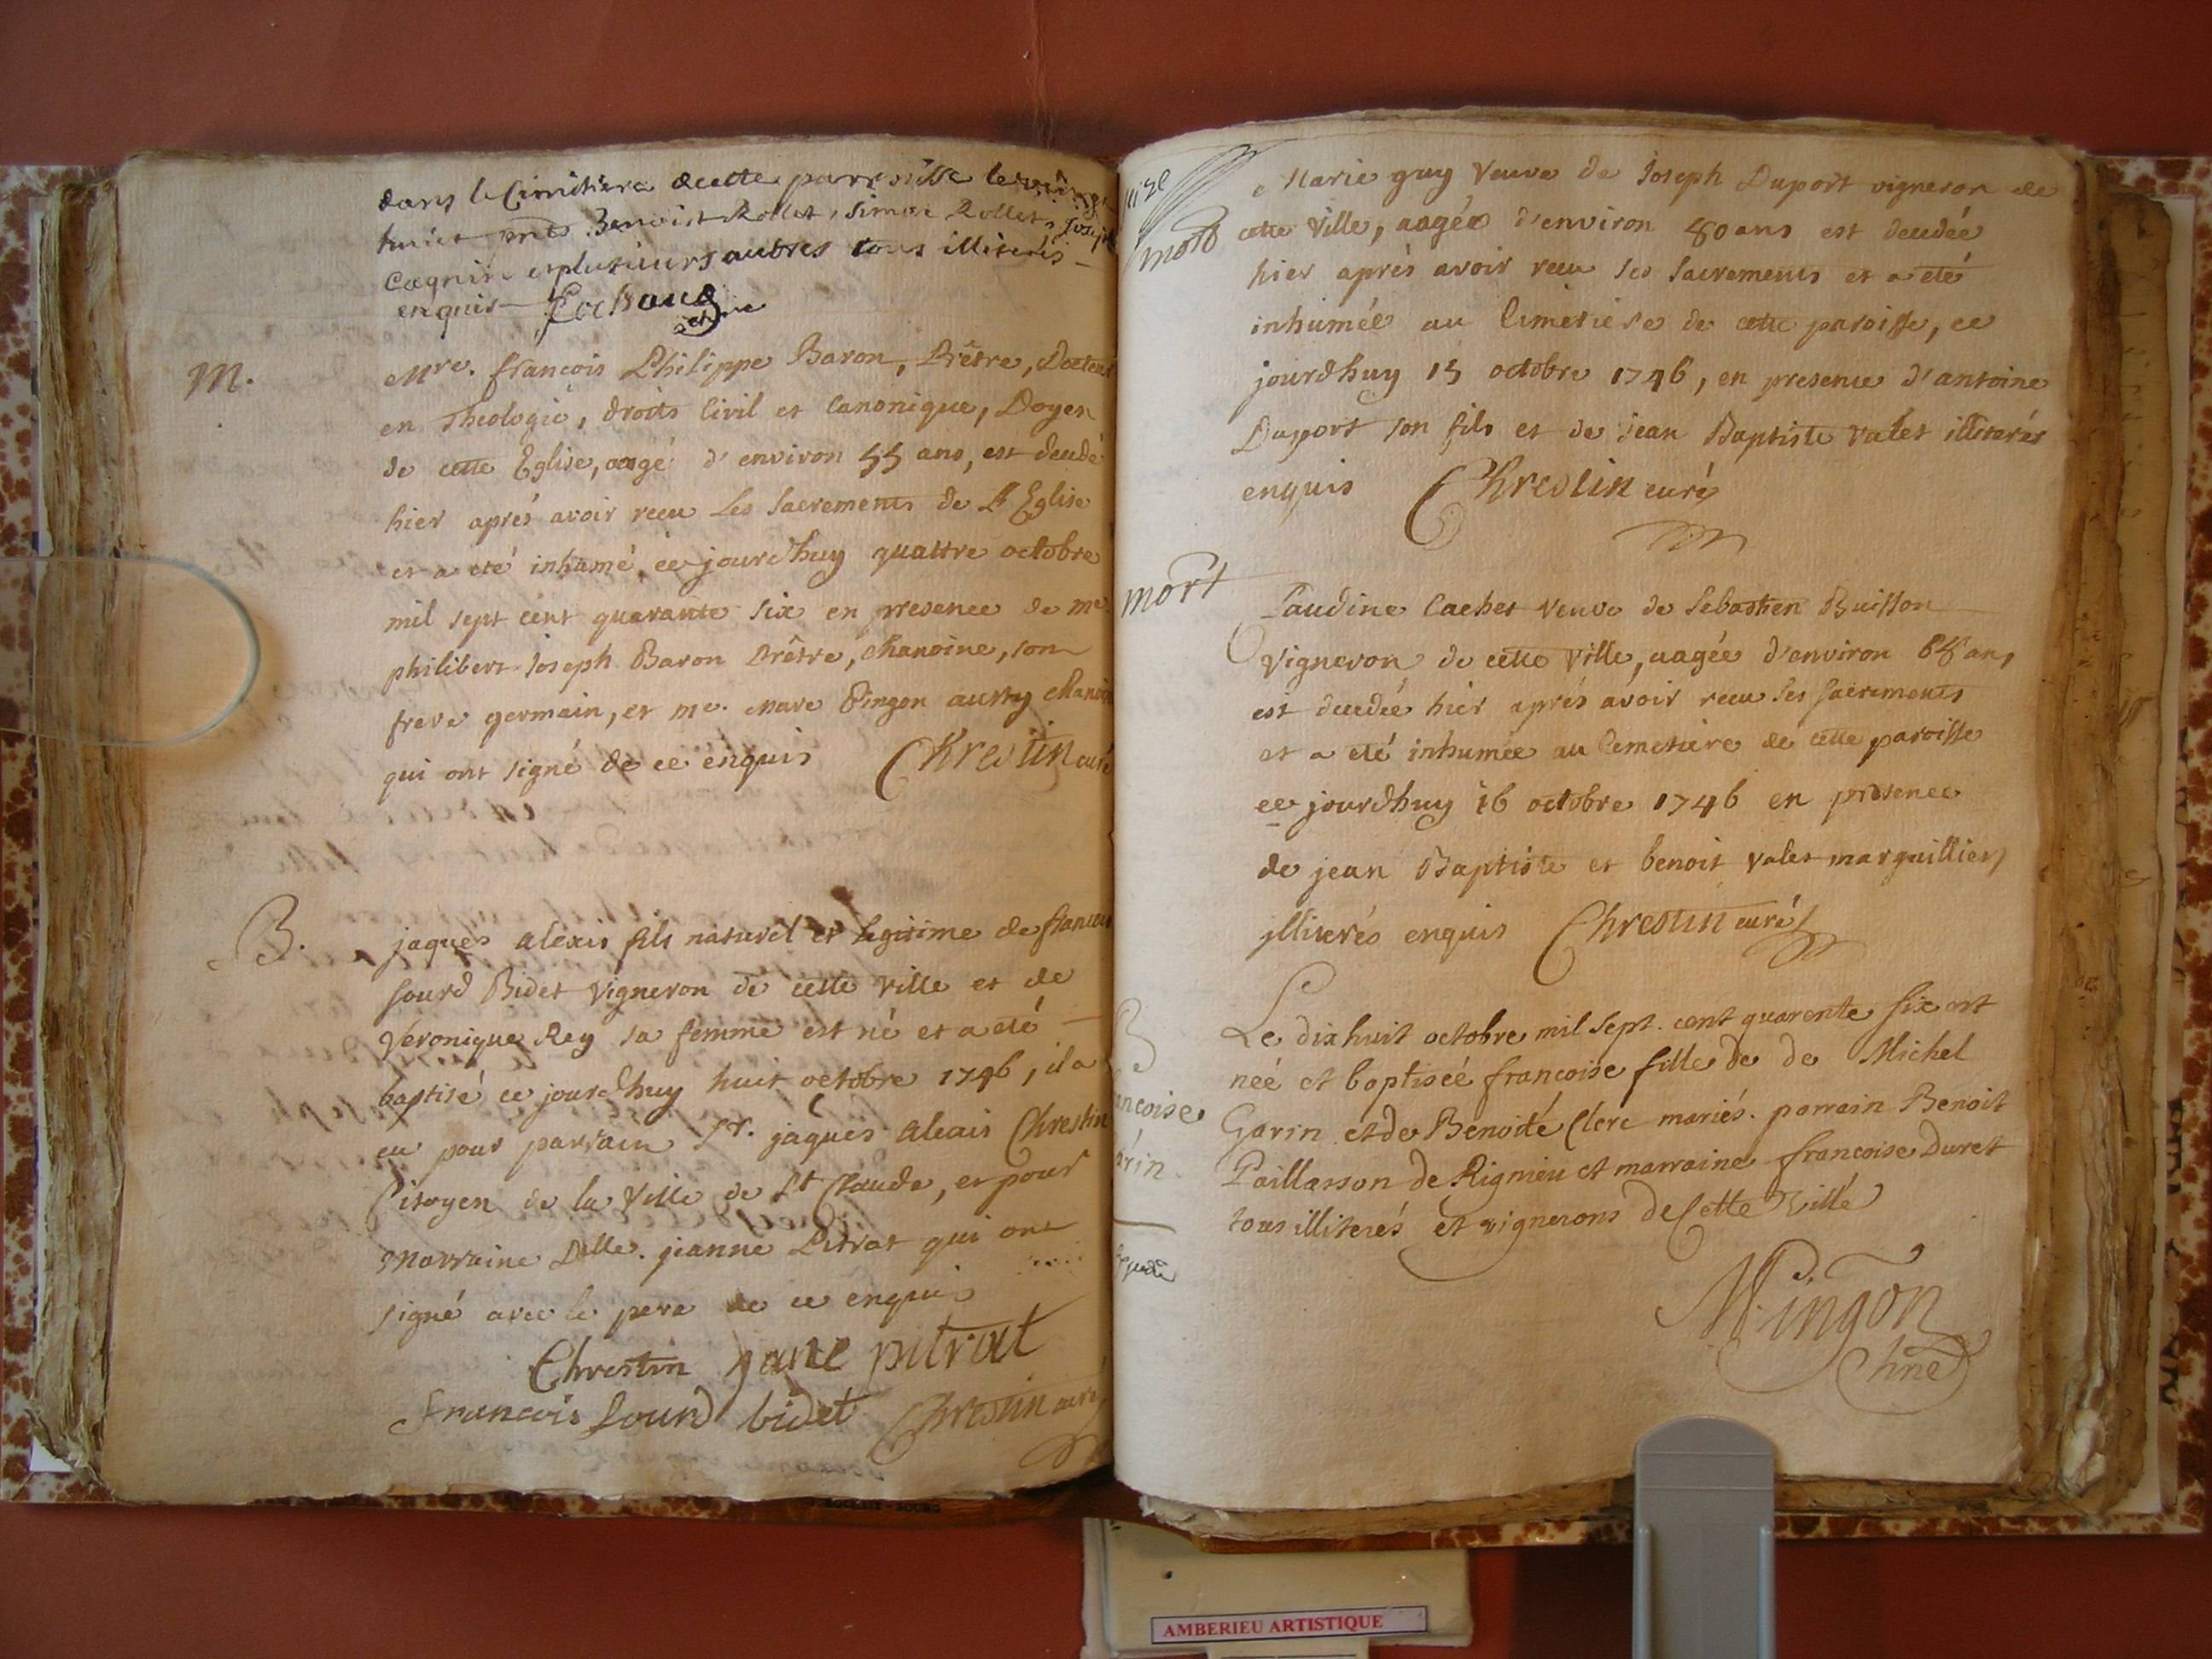 dans le Cimetiere de cette parroisse le vingt
huict pnts Benoist Rollet, Simon Rollet, Joseph
Cognin et plusieurs autres tous illiterés
enquis Cochaud
M.
Mre. françois Philippe Baron, Prêtre, Docteur
en Theologie, droits Civil et Canonique, Doyen
de cette Eglise, aagé d'environ 55 ans, est decedé
hier aprés avoir receu Les Sacrements de L'Eglise
et a eté inhumé, ce jourdhuy quattre octobre
mil sept cent quarante six en presence de me.
philibert Joseph Baron Prêtre, Chanoine, son
frere germain, et me. Marc Pingon aussy Chanoine
qui ont signé de ce enquis Chrestin curé
B.
jaques alexis fils naturel et legitime de francois
sourd Bidet vigneron de cette ville et de
Veronique Rey sa femme est né et a eté
baptisé ce jourdhuy huit octobre 1746, il a
eu pour parrain Sr. jaques alexis Chrestin
Citoyen de la Ville de St Claude, et pour
Marraine Delle. jeanne Pitrat qui ont
signé avec le pere de ce enquis
Chrestin jane pitrat
Francois Sourd bidet Chrestin curé
mort
Marie guy Veuve de Joseph Duport vigneron de
cette Ville, aagée d'environ 80 ans est decedée
hier aprés avoir receu ses Sacrements et a eté
inhumée au Cimetiere de cette paroisse, ce
jourdhuy 15 octobre 1746, en presence d'antoine
Duport son fils et de jean Baptiste Valet illiterés
enquis Chrestin curé
mort
Claudine Cachet veuve de Sebastien Buisson
Vigneron de cette Ville, aagée d'environ 68 ans
est decedée hier aprés avoir receu ses sacrements
et a eté inhumée au Cemetiere de cette paroisse
ce jourdhuy 16 octobre 1746 en presence
de jean Baptiste et benoit Valet marguilliers
illiterés enquis Chrestin curé
B
ncoise
arin
Le dixhuit octobre mil sept. cent quarente six est
neé et baptiseé francoise fille de de Michel
Garin et de Benoité Clerc mariés. parrain Benoit
Paillasson de Rignieu et marraine francoise Duret
tous illiterés et vignerons de Cette Ville
M Pingon
Chne
AMBERIEU ARTISTIQUE